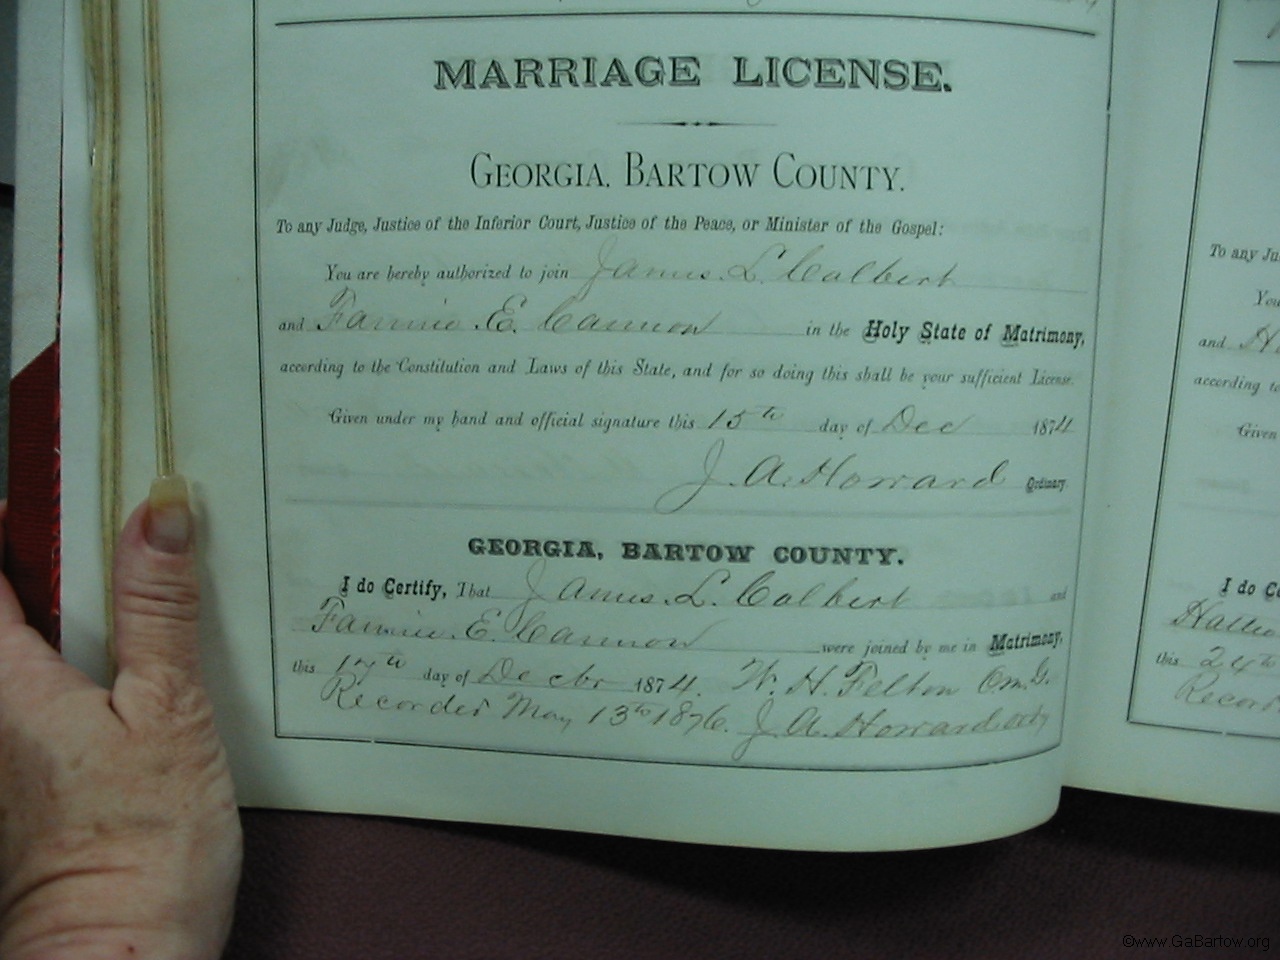 MARRIAGE LICENSE.
GEORGIA, BARTOW COUNTY.
To any Judge, Justice of the Inferior Court, Justice of the Peace, or Minister of the Gospel:
You are hereby authorized to join James. L. Colbert
and Fannie. E. Cannon in the Holy State of Matrimony,
according to the Constitution and Laws of this State, and for so doing this shall be your sufficient License.
Given under my hand and official signature this 15th day of Dec 1874
J. A. Howard Ordinary.
GEORGIA, BARTOW COUNTY.
I do Certify, That James. L. Colbert and
Fannie. E. Cannon were joined by me in Matrimony,
this 17th day of Decbr 1874. W. H. Felton
Recorded May 13th 1876. J. A. Howard ordy
To any Ju
You
and
according to
Given
I do Ce
Hattie
this 24th
Record
©www.GaBartow.org